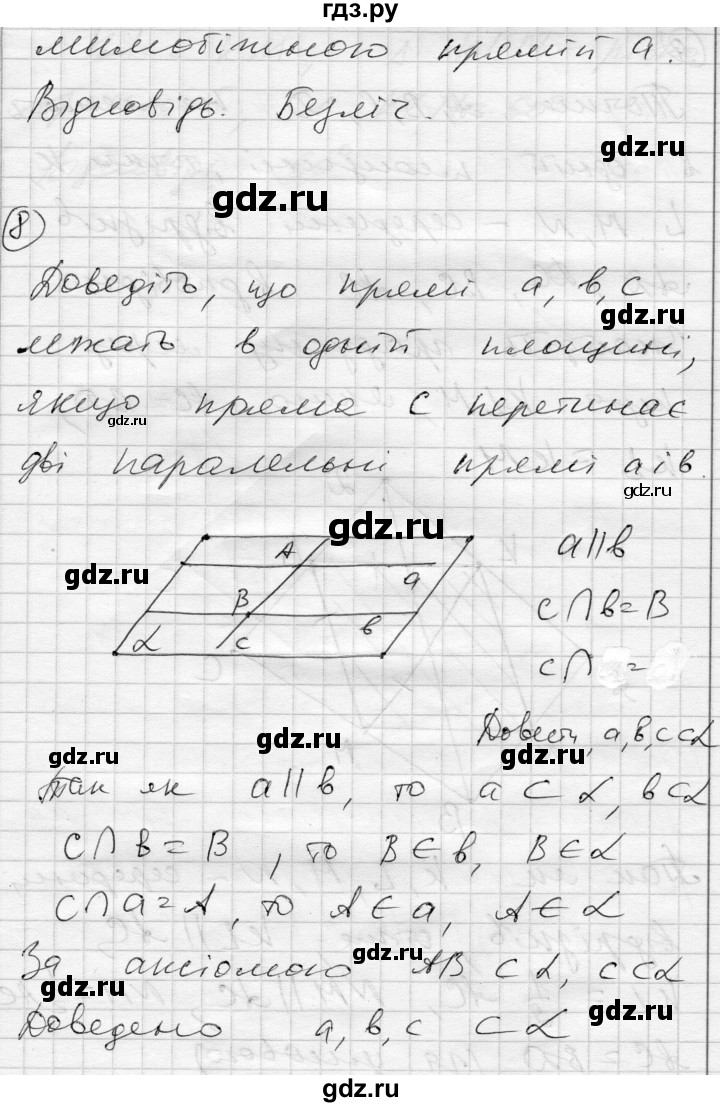 гдз.ру
мимобіжного прямій а.
Відповідь. Безліч.
gdz.ru
gdz.ru
8
Доведіть, що прямі а, в, с
gdz.ru
лежать в одній площині,
якщо пряма с перетинає
gdz.ru
дві паралельні прямі а і в.
gdz.ru
gdz.ru
A
a
a∥b
gdz.ru
B
в
c∩b=B
α
c
c∩ =
Довести, a, b, c⊂α
gdz.ru
gdz.ru
Так як a∥b, то a⊂α, b⊂α
c∩b=B, то B∈b, B∈α
c∩a=A, то A∈a, A∈α
gdz.ru
За аксіомою AB⊂α, c⊂α
gdz.ru
gdz.ru
Доведено a, b, c ⊂α
gdz.ru